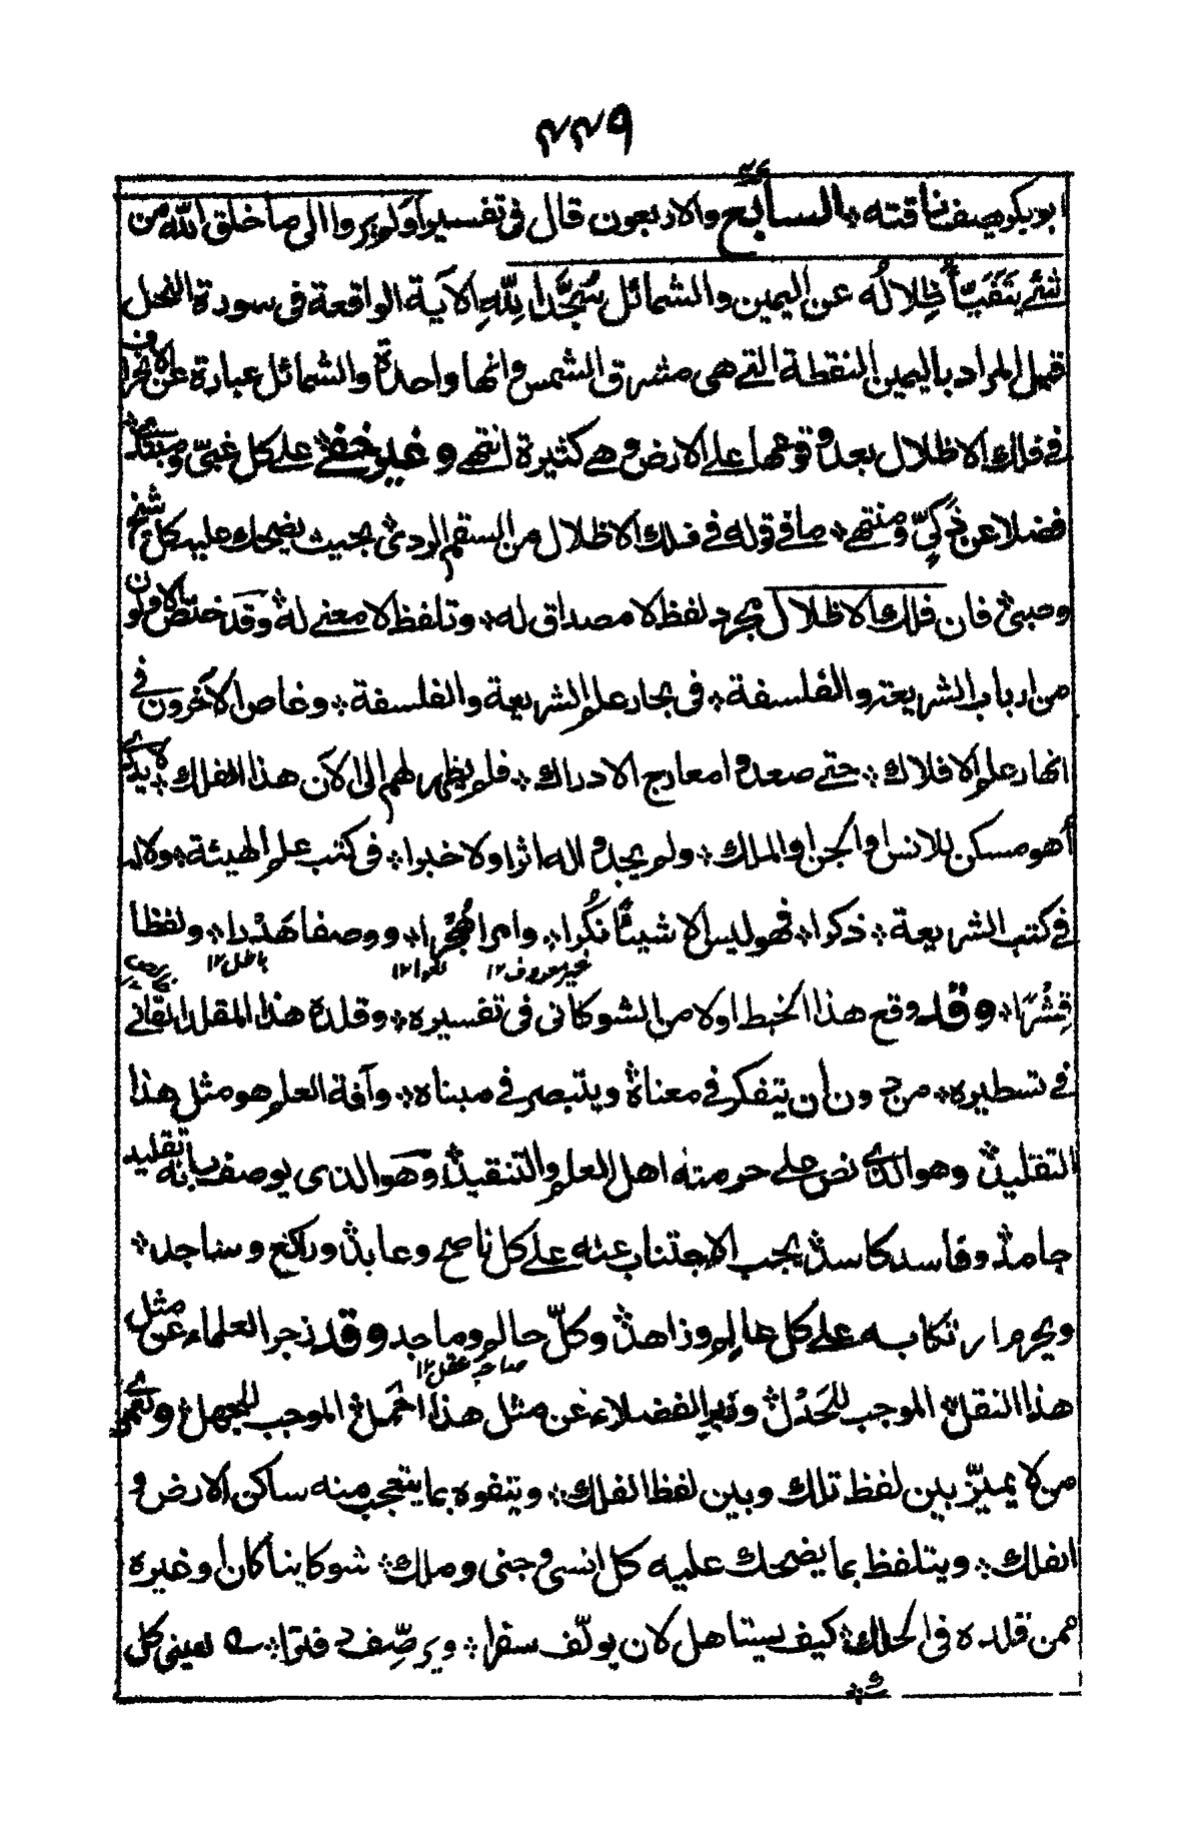 ٤٤٩
ابو بكر يصف ناقته ٭ السابع والاربعون قال فى تفسير اولم يروا الى ما خلق الله من
شئ يتفيأ ظلاله عن اليمين والشمائل سجدا لله الآية الواقعة فى سورة النحل
قيل المراد باليمين النقطة التى هى مشرق الشمس وانها واحدة والشمائل عبارة عن الانحراف
فى فلك الاظلال بعد وقوعها على الارض وهى كثيرة انتهى وغير خفى على كل غبى ومبتدى
فضلا عن ذكى ومنتهى ٭ ما فى قوله فى فلك الاظلال من السقم الردى بحيث يضحك عليه كل شيخ
وصبى فان فلك الاظلال مجرد لفظ لا مصداق له ٭ وتلفظ لا معنى له وقد خاض الاولون
من ارباب الشريعة والفلسفة ٭ فى بحار علم الشريعة والفلسفة ٭ وغاص الآخرون فى
انهار علم الافلاك ٭ حتى صعدوا معارج الادراك ٭ فلم يظهر لهم الى الآن هذا الفلك ٭ لا يدرى
أهو مسكن للانس او الجن او الملك ٭ ولم يجدوا له اثرا ولا خبرا ٭ فى كتب علم الهيئة ٭ ولا له
فى كتب الشريعة ٭ ذكرا ٭ فهو ليس الا شيئا نكرا ٭ وامرا هجرا ٭ ووصفا هدرا ٭ ولفظا
غير معروف ١٢ لغوا ١٢ باطل ١٢
قشرا ٭ وقد وقع هذا الخبط اولا من الشوكانى فى تفسيره ٭ وقلده هذا المقلد القانى
فى تسطيره ٭ من دون ان يتفكر فى معناه ويتبصر فى مبناه ٭ وآفة العلم هو مثل هذا
التقليد وهو الذى نص على حرمته اهل العلم والتنقيد وهو الذى يوصف بانه تقليد
جامد وفاسد كاسد يجب الاجتناب عنه على كل ناصح وعابد وراكع وساجد ٭
ويحرم ارتكابه على كل عالم وزاهد وكل حالم وماجد وقد زجر العلماء عن مثل
صاحب عقل ١٢
هذا النقل الموجب للخذل وزبر الفضلاء عن مثل هذا الحمل الموجب للجهل
من لا يميز بين لفظ تلك وبين لفظ الفلك ٭ ويتفوه بما يتعجب منه ساكن الارض و
الفلك ٭ ويتلفظ بما يضحك عليه كل انسى وجنى وملك ٭ شوكانيا كان او غيره
ممن قلده فى الحلك ٭ كيف يستاهل لان يولف سفرا ٭ ويرصف دفترا ٭ يعينى كل